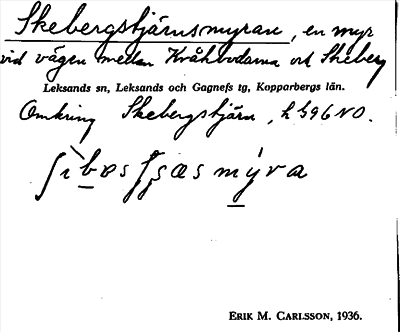 Skebergstjärnsmyran, en myr
vid vägen mellan Kråkbodarna och Skeberg
Leksands sn, Leksands och Gagnefs tg, Kopparbergs län.
Omkring Skebergstjärn, h 596 NO.
ERIK M. CARLSSON, 1936.